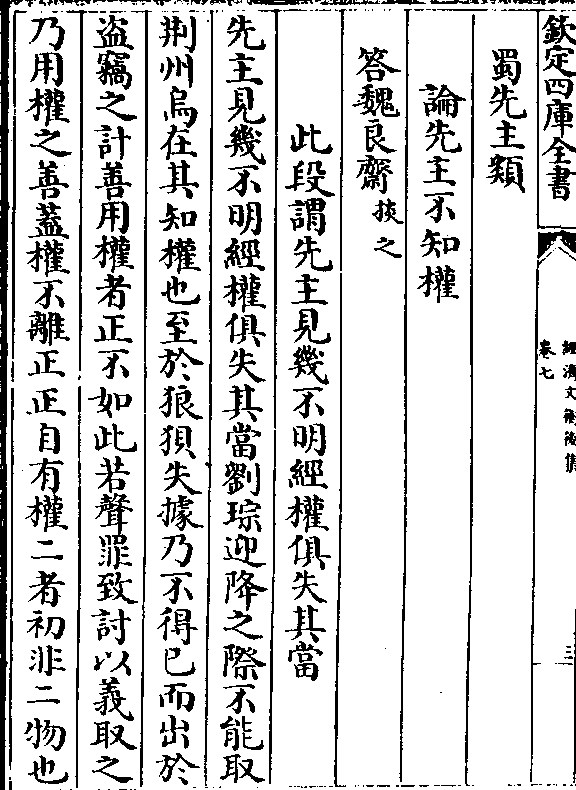 欽定四庫全書
經濟文衡後集
卷七
三
蜀先主類
論先主不知權
答魏良齋掞之
此段謂先主見幾不明經權俱失其當
先主見幾不明經權俱失其當劉琮迎降之際不能取
荆州烏在其知權也至於狼狽失據乃不得已而出於
盗竊之計善用權者正不如此若聲罪致討以義取之
乃用權之善葢權不離正正自有權二者初非二物也